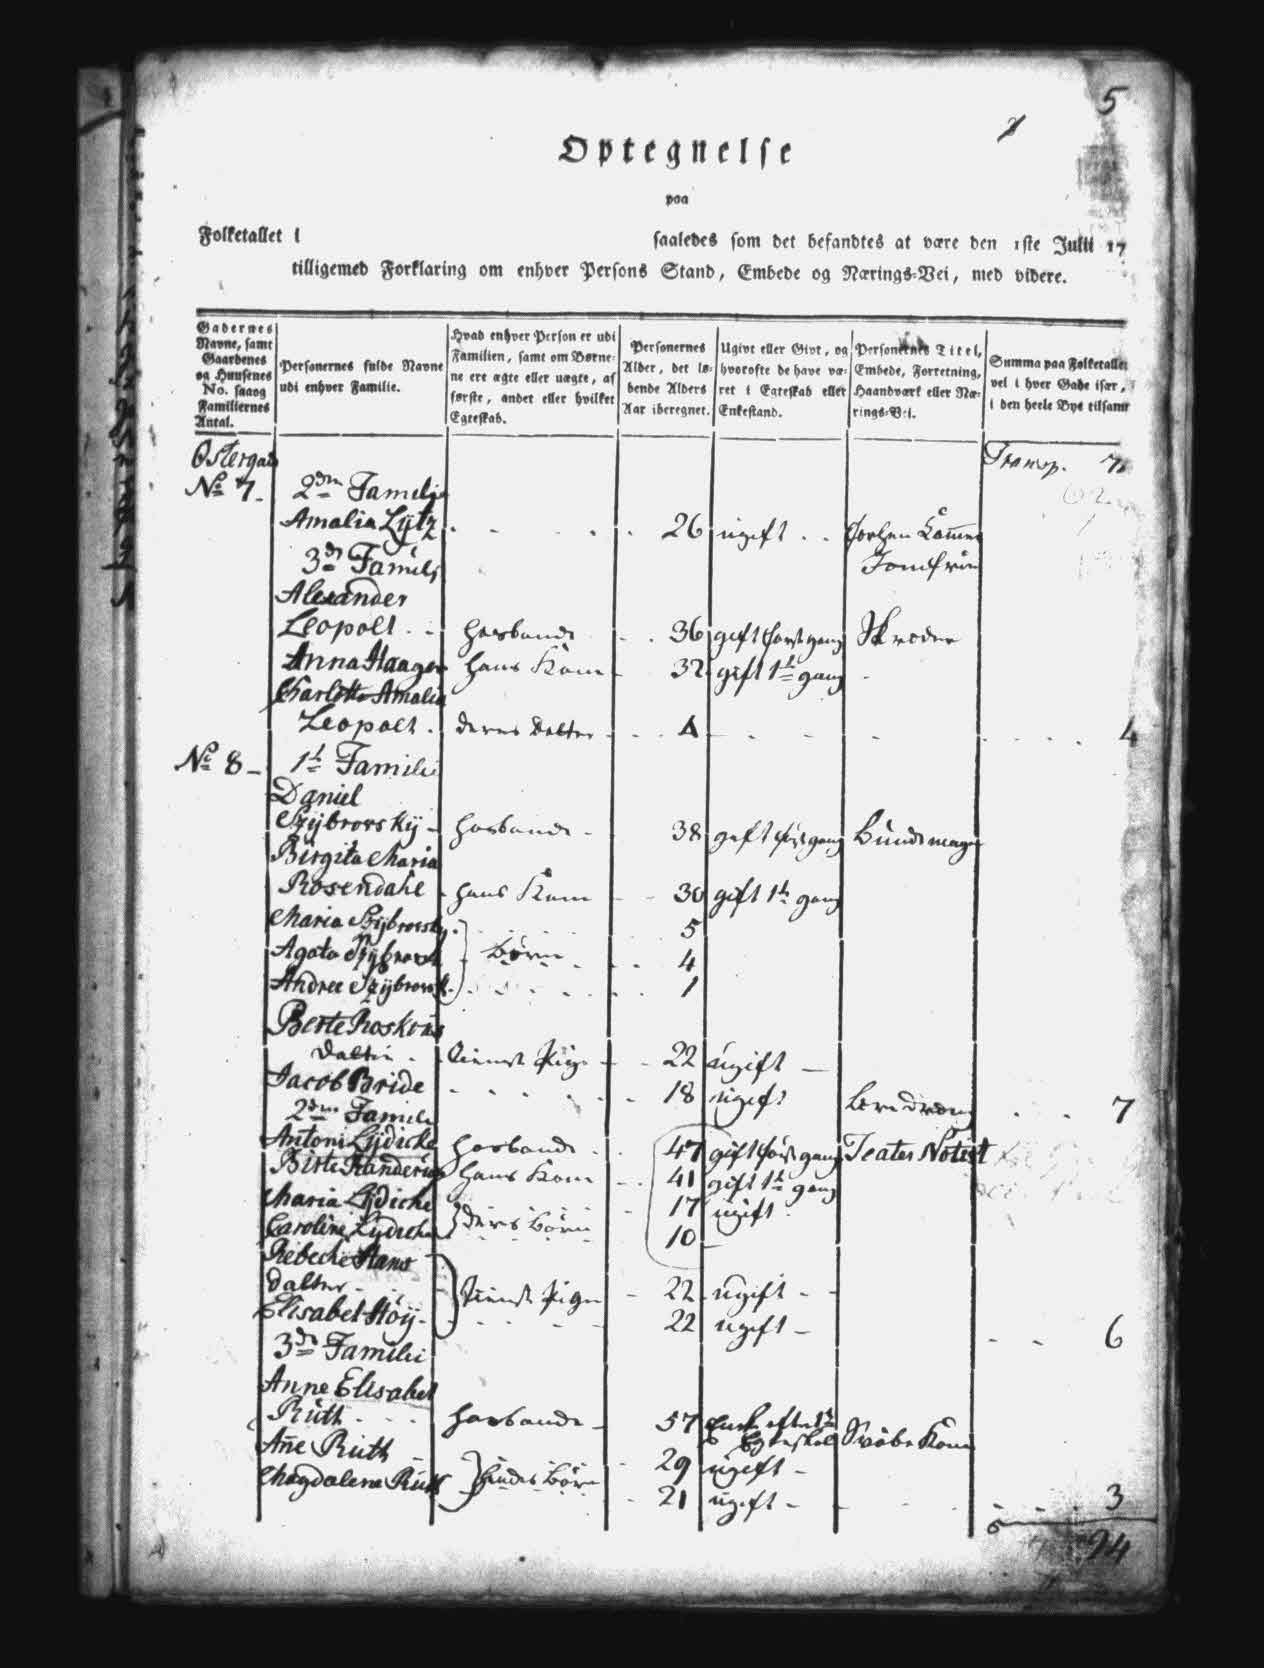 5
Optegnelse
paa
Folketallet i saaledes som det befandtes at være den 1ste Julii 17
tilligemed Forklaring om enhver Persons Stand, Embede og Nærings-Vei, med videre.
Gadernes Navne, samt Gaardenes og Huusenes No. saaog Familiernes Antal.
Personernes fulde Navne udi enhver Familie.
Hvad enhver Person er udi Familien, samt om Børnene ere ægte eller uægte, af første, andet eller hvilket Egteskab.
Personernes Alder, det løbende Alders Aar iberegnet.
Ugivt eller Givt, og hvorofte de have været i Egteskab eller Enkestand.
Personernes Titel, Embede, Forretning, Haandværk eller Nærings-Vei.
Summa paa Folketallet vel i hver Gade især, i den heele Bye tilsamt
Østergad Transp.
No 7 - 2den Famili
Amalia Lÿtz 26 ugift
3de Famili Jomfrue
Alexander
Leopolt hosbonde 36 gift første gang Skreder
Anna Haager hans Kone 32 gift 1te gang
Charlotte Amalia
Leopolt deres Dotter 4 4
No 8 - 1te Famili
Daniel
Szÿbrovskÿ hosbonde 38 gift første gang Bundtmager
Birgita Maria
Rosendahl hans Kone 30 gift 1te gang
Maria Szÿbrovsky 5
Agata Szÿbrovsk Børn 4
Andree Szÿbrovsk 1
Berte Roskilds
Datter tienest Pige 22 ugift
Jacob Bride 18 ugift Leredreng 7
2den Famili
Antoni Lÿdicke hosbonde 47 gift første gang Teater Notist
Birte Randerup hans Kone 41 gift 1te gang
Maria Lÿdicke 17 ugift
Caroline Lÿdicke deres Børn 10
Rebecke Hans
datter 22 ugift
Elisabet Höÿ tienest Pige 22 ugift 6
3de Famili
Anne Elisabet
Ruth hosbonde 57 Enke efter 1te Egteskab
Añe Ruth 29 ugift
Magdalene Ruth hendes Børn 21 ugift 3
94